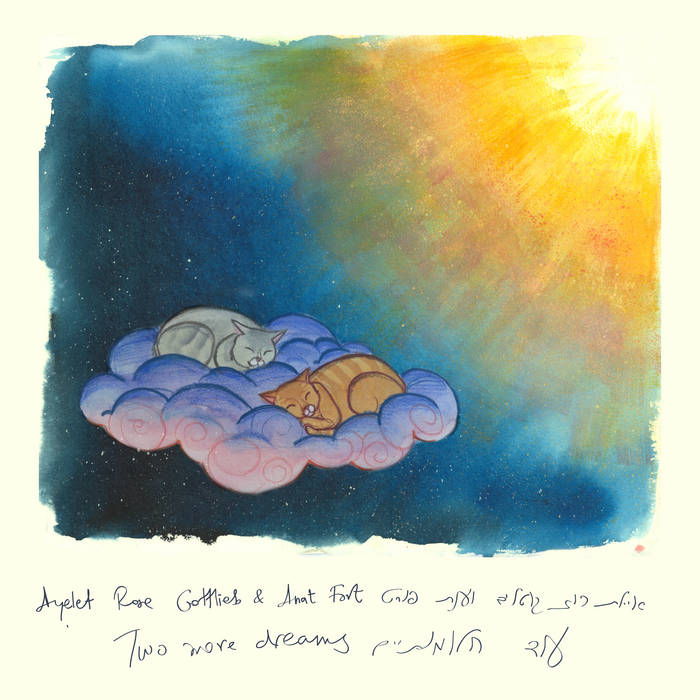 Ayelet Rose Gottlieb & Anat Fort איילת רוז גוטליב וענת פורט
Two more dreams עוד חלומתיים